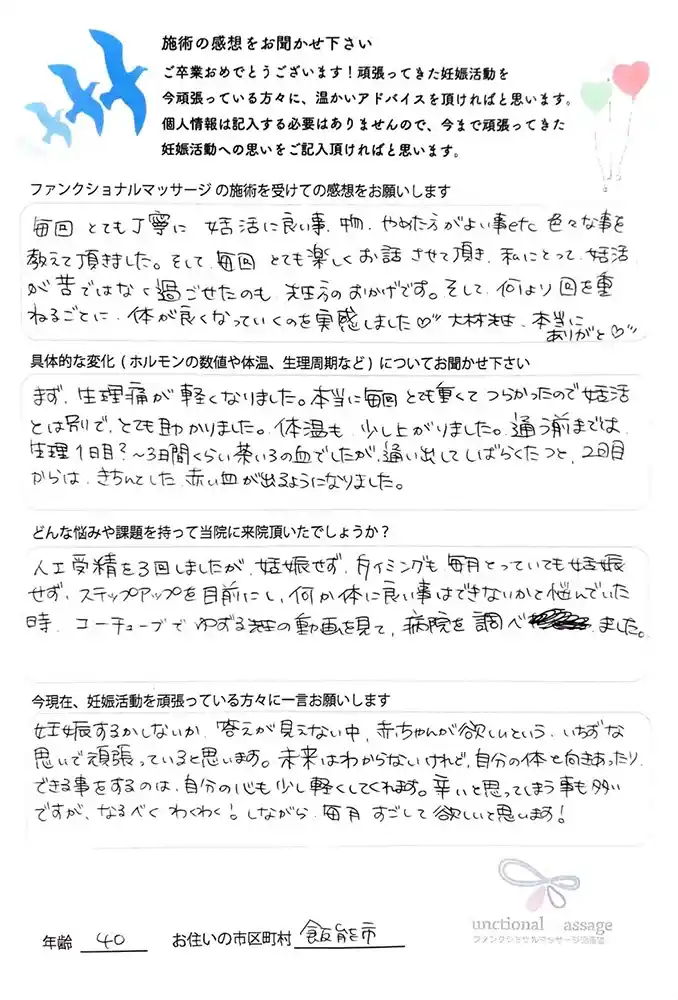 施術の感想をお聞かせ下さい
ご卒業おめでとうございます！頑張ってきた妊娠活動を
今頑張っている方々に、温かいアドバイスを頂ければと思います。
個人情報は記入する必要はありませんので、今まで頑張ってきた
妊娠活動への思いをご記入頂ければと思います。
ファンクショナルマッサージ の施術を受けての感想をお願いします
毎回 とても丁寧に 妊活に良い事、物、やめた方がよい事etc 色々な事を
教えて頂きました。そして、毎回 とても楽しくお話させて頂き、私にとって、妊活
が苦ではなく過ごせたのも、先生方のおかげです。そして、何より回を重
ねるごとに、体が良くなっていくのを実感しました♡ 大村先生、本当に
ありがと♡
具体的な変化（ホルモンの数値や体温、生理周期など）についてお聞かせ下さい
まず、生理痛が軽くなりました。本当に毎回とても重くてつらかったので妊活
とは別で、とても助かりました。体温も、少し上がりました。通う前までは、
生理1日目？～3日間くらい茶いろの血でしたが、通い出してしばらくたつと、2日目
からは、きちんとした、赤い血が出るようになりました。
どんな悩みや課題を持って当院に来院頂いたでしょうか？
人工受精を3回しましたが、妊娠せず、タイミングも毎月とっていても妊娠
せず、ステップアップを目前にし、何か体に良い事はできないかと悩んでいた
時、ユーチューブで ゆずる先生の動画を見て、病院を調べ ました。
今現在、妊娠活動を頑張っている方々に一言お願いします
妊娠するかしないか、答えが見えない中、赤ちゃんが欲しいという、いちずな
思いで頑張っていると思います。未来はわからないけれど、自分の体と向きあったり、
できる事をするのは、自分の心も少し軽くしてくれます。辛いと思ってしまう事も多い
ですが、なるべくわくわく！しながら、毎月 すごして欲しいと思います！
unctional assage
ファンクショナルマッサージ治療室
年齢 40 お住いの市区町村 飯能市